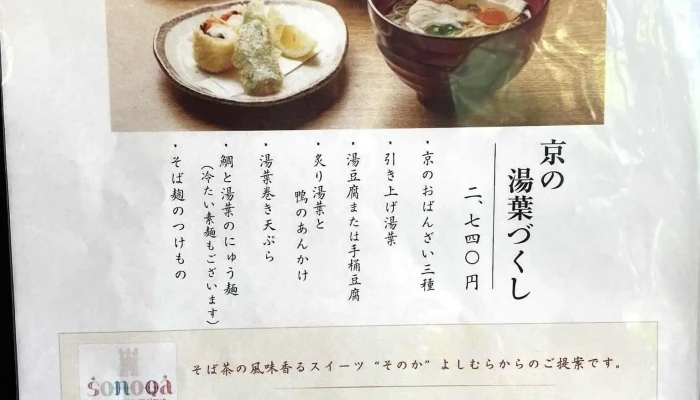 京の
湯葉づくし
二、七四〇円
・京のおばんざい三種
・引き上げ湯葉
・湯豆腐または手桶豆腐
・炙り湯葉と
鴨のあんかけ
・湯葉巻き天ぷら
・鯛と湯葉のにゅう麺
（冷たい素麺もございます）
・そば麹のつけもの
そば茶の風味香るスイーツ “そのか” よしむらからのご提案です。
sonoqa